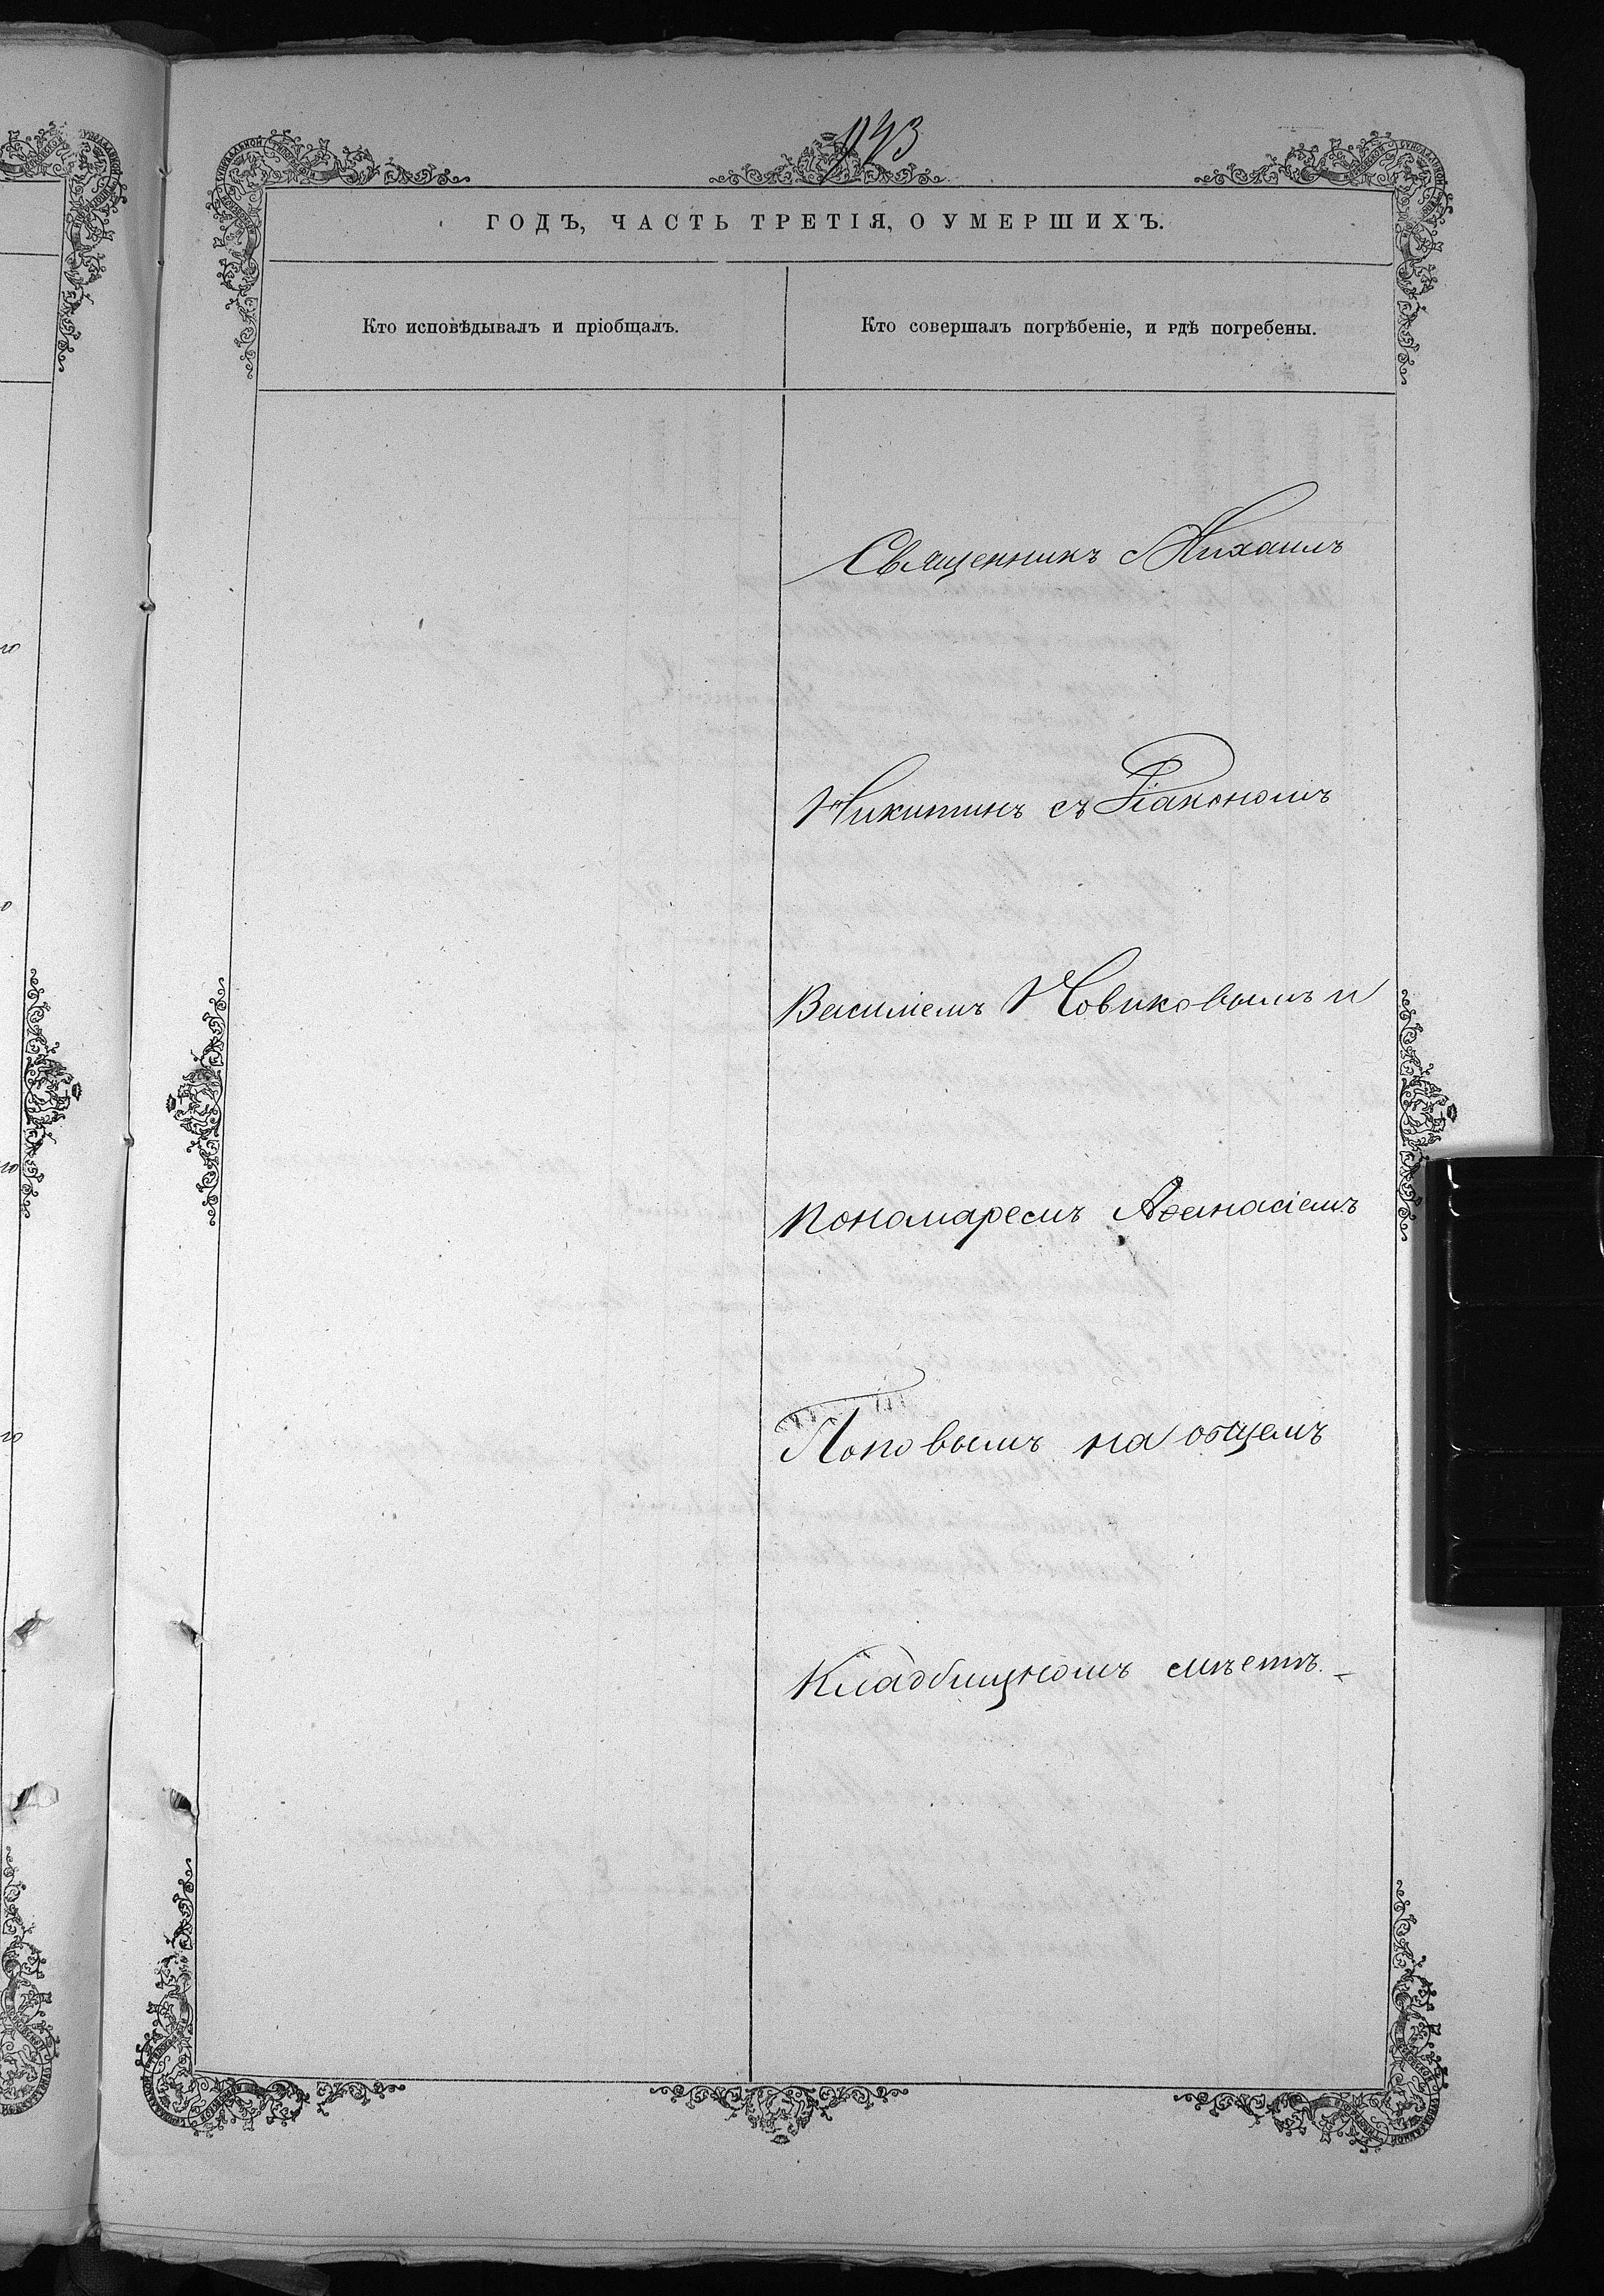 ГОДЪ, ЧАСТЬ ТРЕТІЯ, О УМЕРШИХЪ.
Кто исповѣдывалъ и пріобщалъ.
Кто совершалъ погрѣбеніе, и гдѣ погребены.
Священникъ Михаилъ
Никитинъ съ Діакономъ
Василіемъ Новиковымъ и
пономаремъ Аѳанасіемъ
Поповымъ на общемъ
Кладбищномъ мѣстѣ.